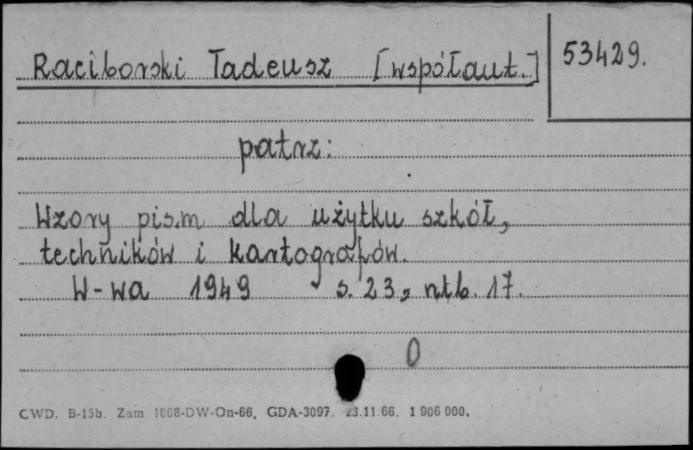 Raciborski Tadeusz [współaut.]
53429.
patrz:
Wzory pism dla użytku szkół,
techników i kartografów.
W-wa 1949 s. 23, nlb. 17.
0
CWD. B-15b. Zam 1008-DW-On-66, GDA-3097. 23.11.66. 1 906 000.